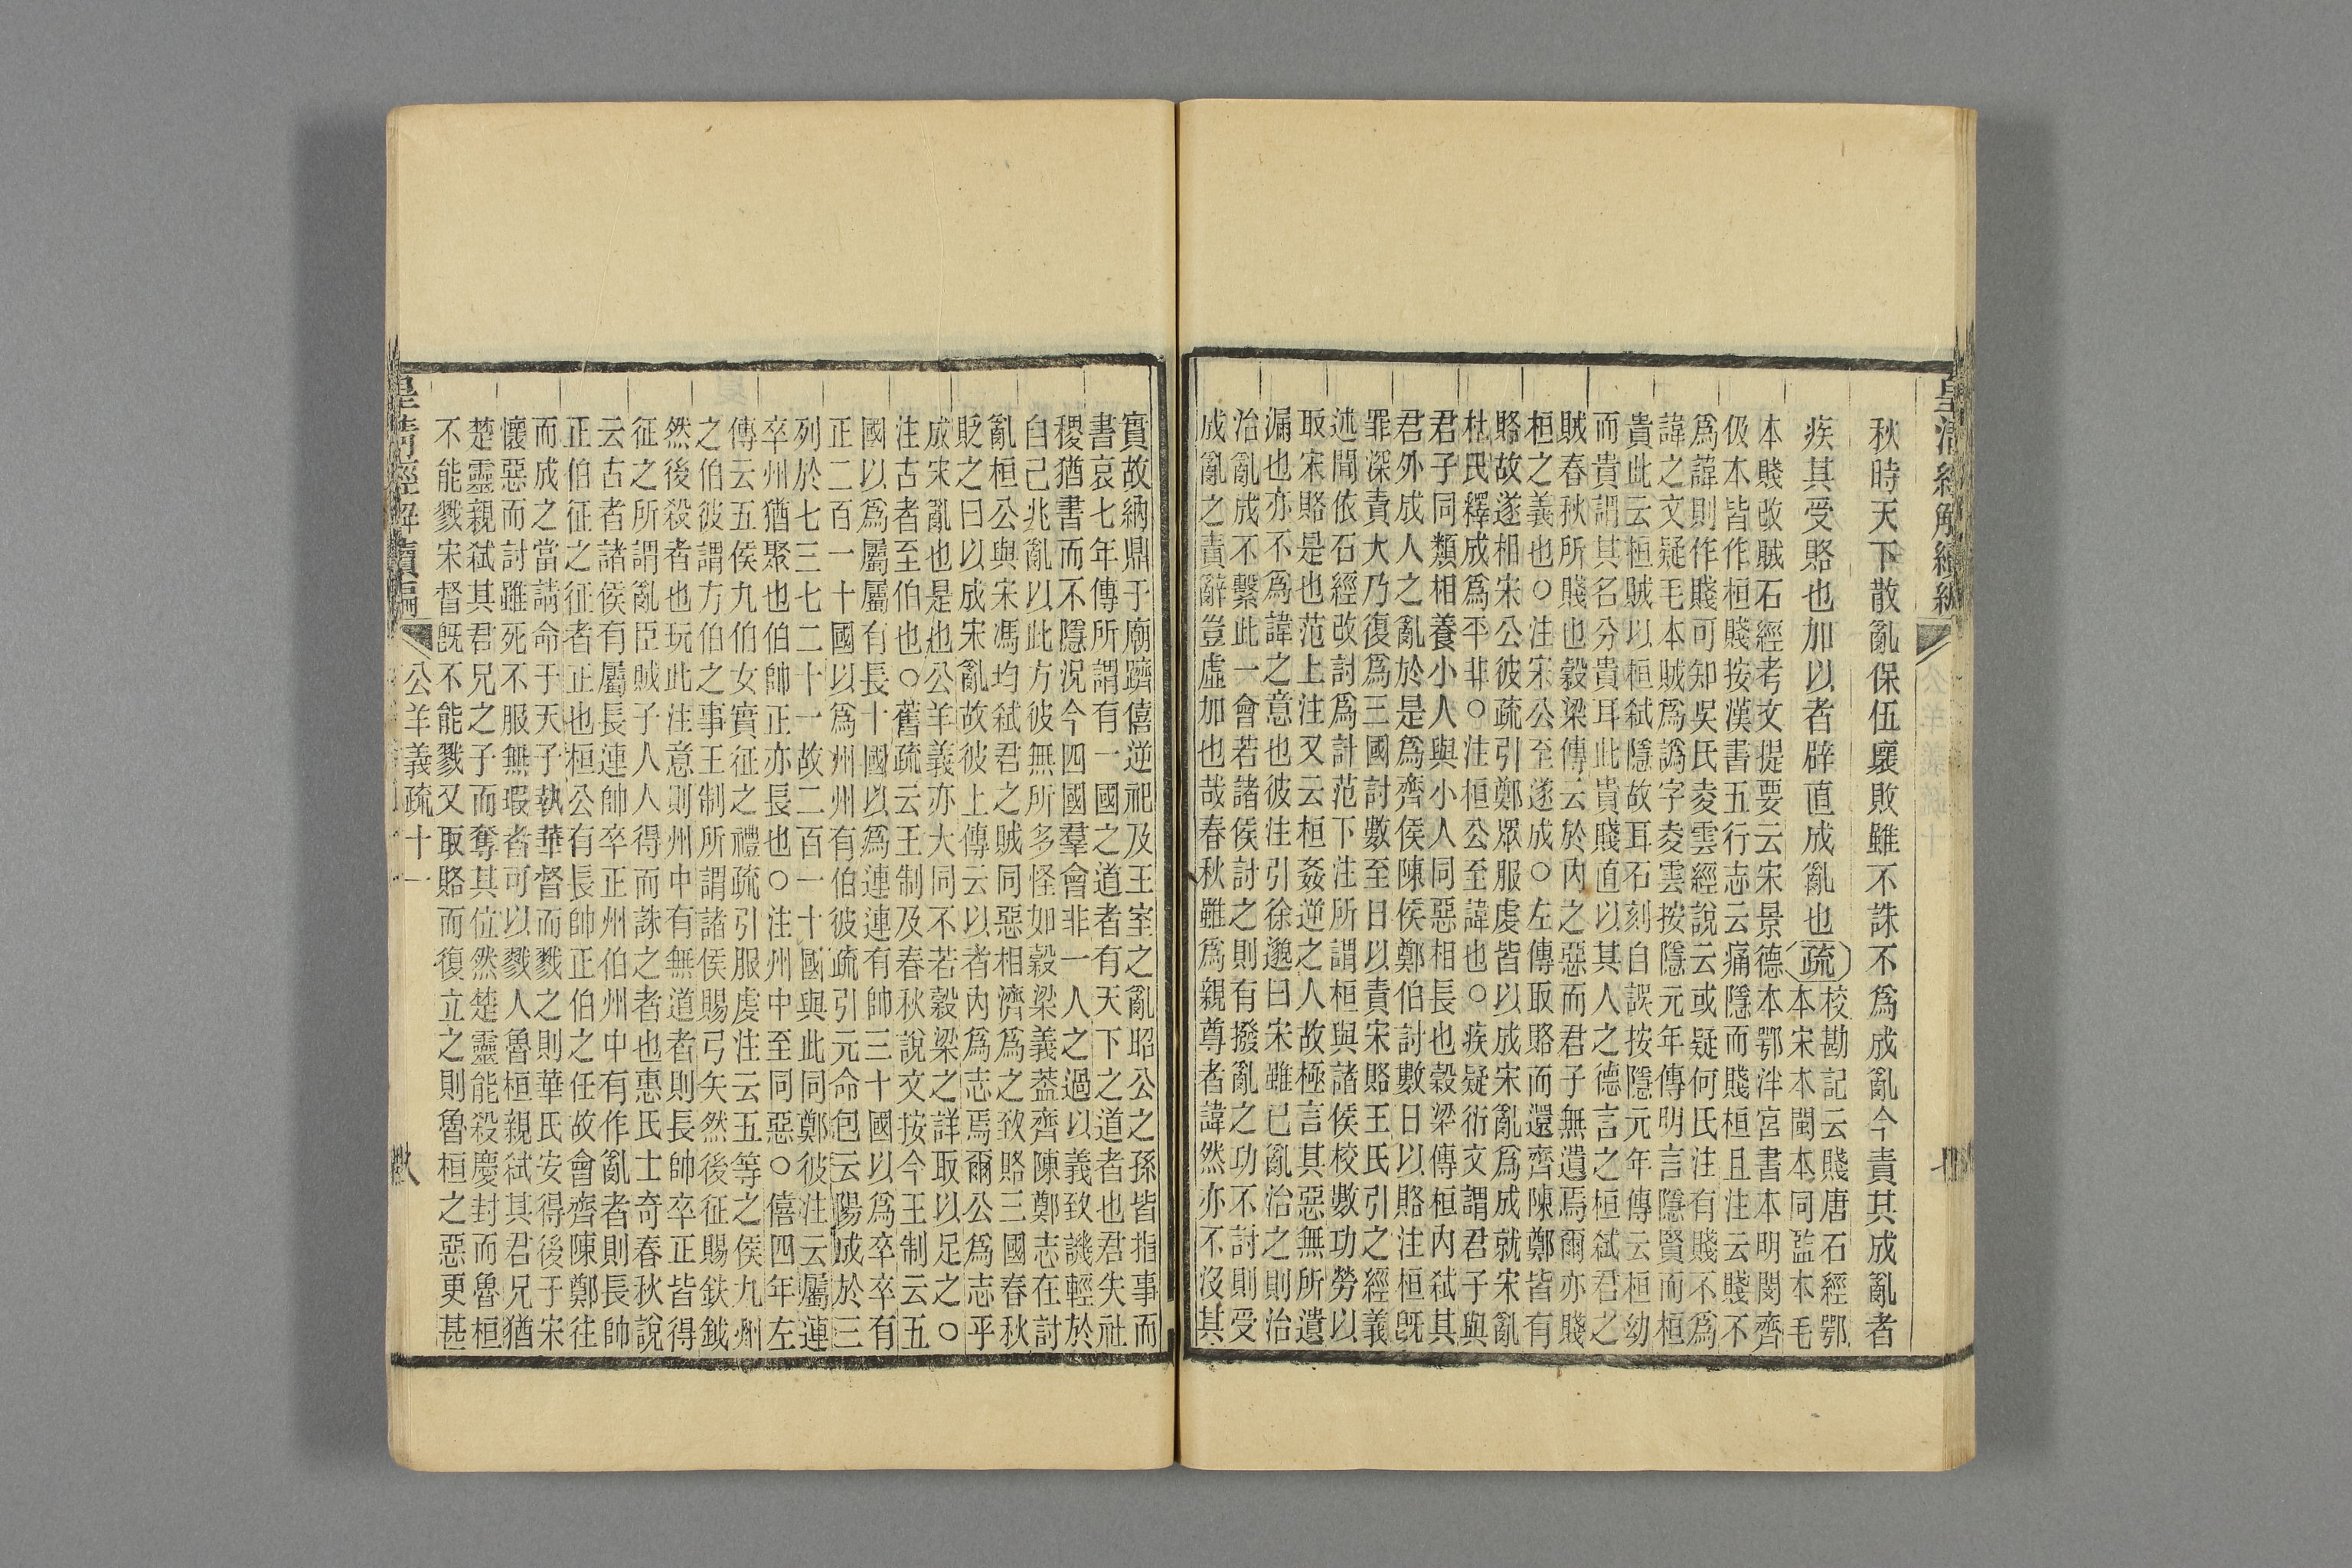 皇清經解續編
秋時天下散亂保伍壞敗雖不誅不爲成亂今責其成亂者
疾其受賂也加以者辟直成亂也疏校勘記云賤唐石經鄂
本宋本閩本同監本毛
本賤改賊石經考文提要云宋景德本鄂泮宮書本明閔齊
伋本皆作桓賤按漢書五行志云痛隱而賤桓且注云賤不
爲諱則作賤可知吳氏凌雲經說云或疑何氏注有賤不爲
諱之文疑毛本賊爲譌字凌雲按隱元年傳明言隱賢而桓
貴此云桓賊以桓弒隱故耳石刻自誤按隱元年傳云桓幼
而貴謂其名分貴耳此貴賤直以其人之德言之桓弒君之
賊春秋所賤也穀梁傳云於內之惡而君子無遺焉爾亦賤
桓之義也○注宋公至遂成○左傳取賂而還齊陳鄭皆有
賂故遂相宋公彼疏引鄭眾服虔皆以成宋亂爲成就宋亂
杜氏釋成爲平非○注桓公至諱也○疾疑衍文謂君子與
君子同類相養小人與小人同惡相長也穀梁傳桓內弒其
君外成人之亂於是爲齊侯陳侯鄭伯討數日以賂注桓旣
罪深責大乃復爲三國討數至日以責宋賂王氏引之經義
述聞依石經改討爲計范下注所謂桓與諸侯校數功勞以
取宋賂是也范上注又云桓姦逆之人故極言其惡無所遺
漏也亦不爲諱之意也彼注引徐邈曰宋雖已亂治之則治
治亂成不繫此一會若諸侯討之則有撥亂之功不討則受
成亂之責辭豈虛加也哉春秋雖爲親尊者諱然亦不沒其
實故納鼎于廟躋僖逆祀及王室之亂昭公之孫皆指事而
書哀七年傳所謂有一國之道者有天下之道者也君失社
稷猶書而不隱況今四國羣會非一人之過以義致譏輕於
自己兆亂以此方彼無所多怪如穀梁義葢齊陳鄭志在討
亂桓公與宋馮均弒君之賊同惡相濟爲之致賂三國春秋
貶之曰以成宋亂故彼上傳云以者內爲志焉爾公爲志乎
成宋亂也是也公羊義亦大同不若穀梁之詳取以足之○
注古者至伯也○舊疏云王制及春秋說文按今王制云五
國以爲屬屬有長十國以爲連連有帥三十國以爲卒卒有
正二百一十國以爲州州有伯彼疏引元命包云陽成於三
列於七三七二十一故二百一十國與此同鄭彼注云屬連
卒州猶聚也伯帥正亦長也○注州中至同惡○僖四年左
傳云五侯九伯女實征之禮疏引服虔注云五等之侯九州
之伯彼謂方伯之事王制所謂諸侯賜弓矢然後征賜鈇鉞
然後殺者也玩此注意則州中有無道者則長帥卒正皆得
征之所謂亂臣賊子人人得而誅之者也惠氏士奇春秋說
云古者諸侯有屬長連帥卒正州伯州中有作亂者則長帥
正伯征之征者正也桓公有長帥正伯之任故會齊陳鄭往
而成之當請命于天子執華督而戮之則華氏安得後于宋
懷惡而討雖死不服無瑕者可以戮人魯桓親弒其君兄猶
楚靈親弒其君兄之子而奪其位然楚靈能殺慶封而魯桓
不能戮宋督旣不能戮又取賂而復立之則魯桓之惡更甚
皇清經解續編
公羊義疏十一